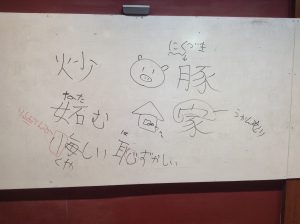 にくづき
炒 豚
ねた
妬む 家 うかんむり
は
悔しい 恥ずかしい
くや